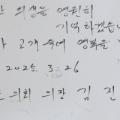 희생을 영원히
기억하겠습니
고개 숙여 명복을
2025. 3. 26
의회 의장 김 진